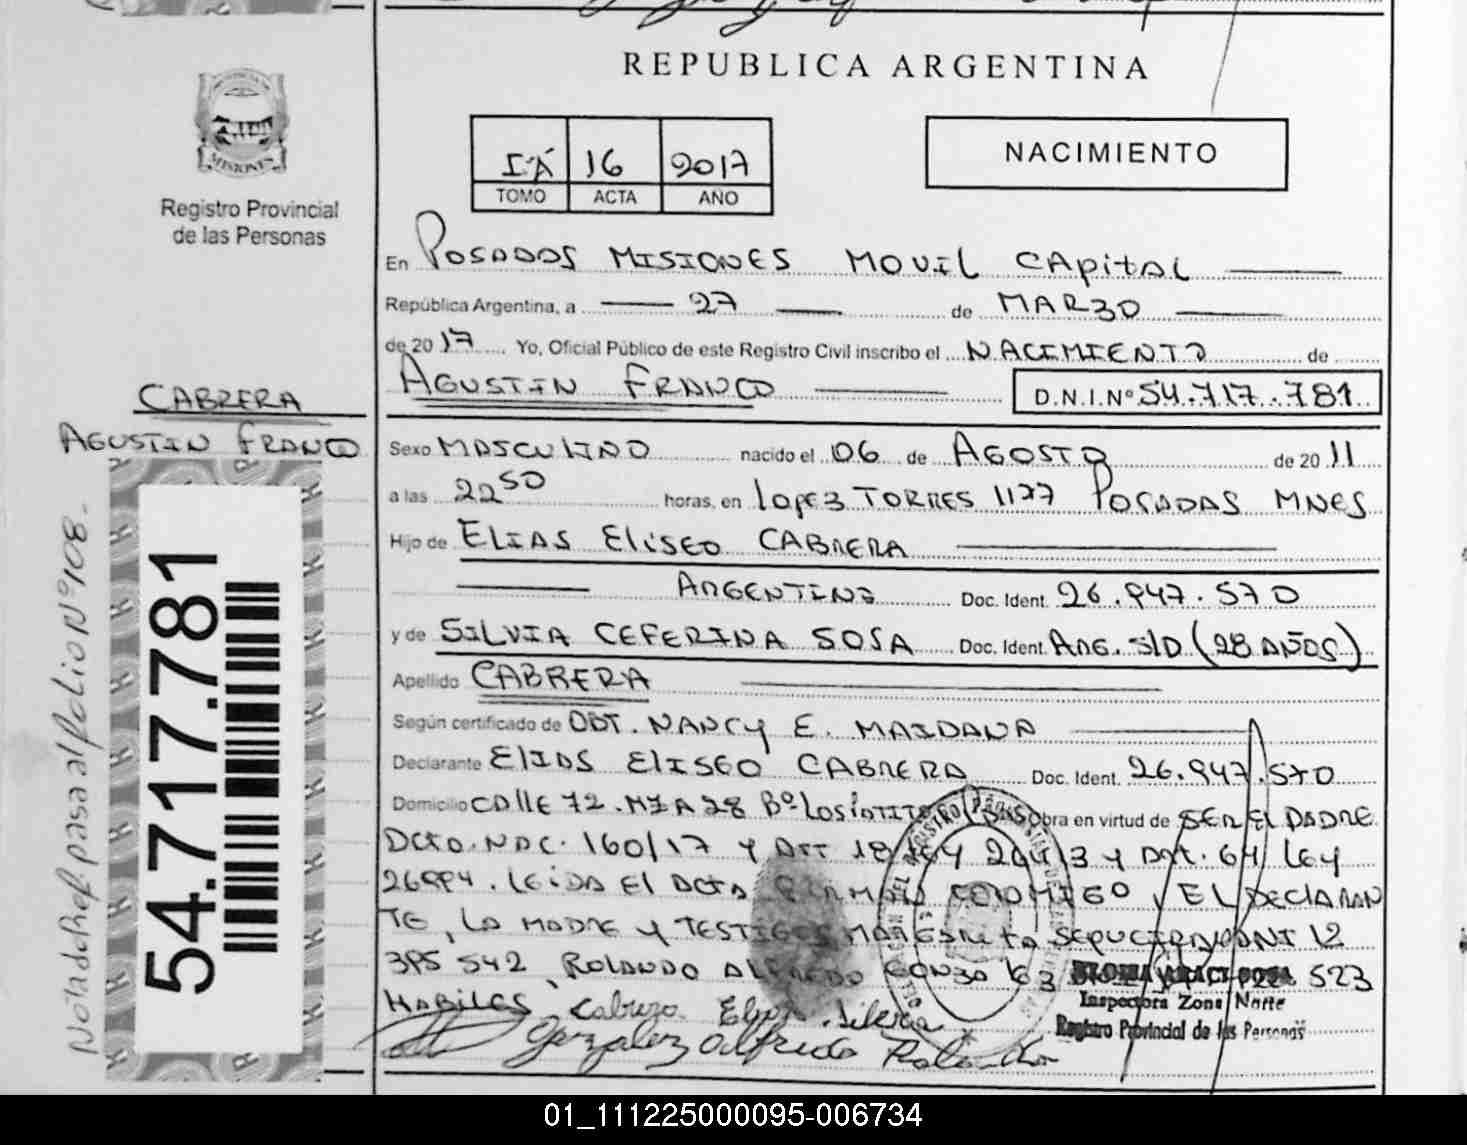 REPUBLICA ARGENTINA
MISIONES
Registro Provincial
de las Personas
IA 16 2017
TOMO ACTA AÑO
NACIMIENTO
En POSADAS MISIONES MOVIL CAPITAL
República Argentina, a 27 de MARZO
de 2017 Yo, Oficial Público de este Registro Civil inscribo el NACIMIENTO de
AGUSTIN FRANCO D.N.I.Nº 54.717.781
CABRERA
AGUSTIN FRANCO
Sexo MASCULINO nacido el 06 de AGOSTO de 2011
a las 22 50 horas, en LOPEZ TORRES 1177 POSADAS MNES
Hijo de ELIAS ELISEO CABRERA
ARGENTINO Doc. Ident. 26.947.570
y de SILVIA CEFERINA SOSA Doc. Ident. ARG. S/D (28 AÑOS)
Apellido CABRERA
Según certificado de ODT. NANCY E. MAIDANA
Declarante ELIAS ELISEO CABRERA Doc. Ident. 26.947.570
Domicilio CALLE 72. MZA 28 Bº Obra en virtud de SER EL PADRE
DCTO. NAC. 160/17 Y ART 18 Y ART. 64 LEY
26994. LEIDA EL ACTA FIRMAN CONMIGO, EL DECLARAN
TE, LA MADRE Y TESTIGOS 12
395 542, ROLANDO ALFREDO 523
HABILES
Cabrera
Gonzalez Alfredo Rolando
Inspectora Zona Norte
Registro Provincial de las Personas
54.717.781
Nota de Ref. pasa al folio Nº 108.
01_111225000095-006734